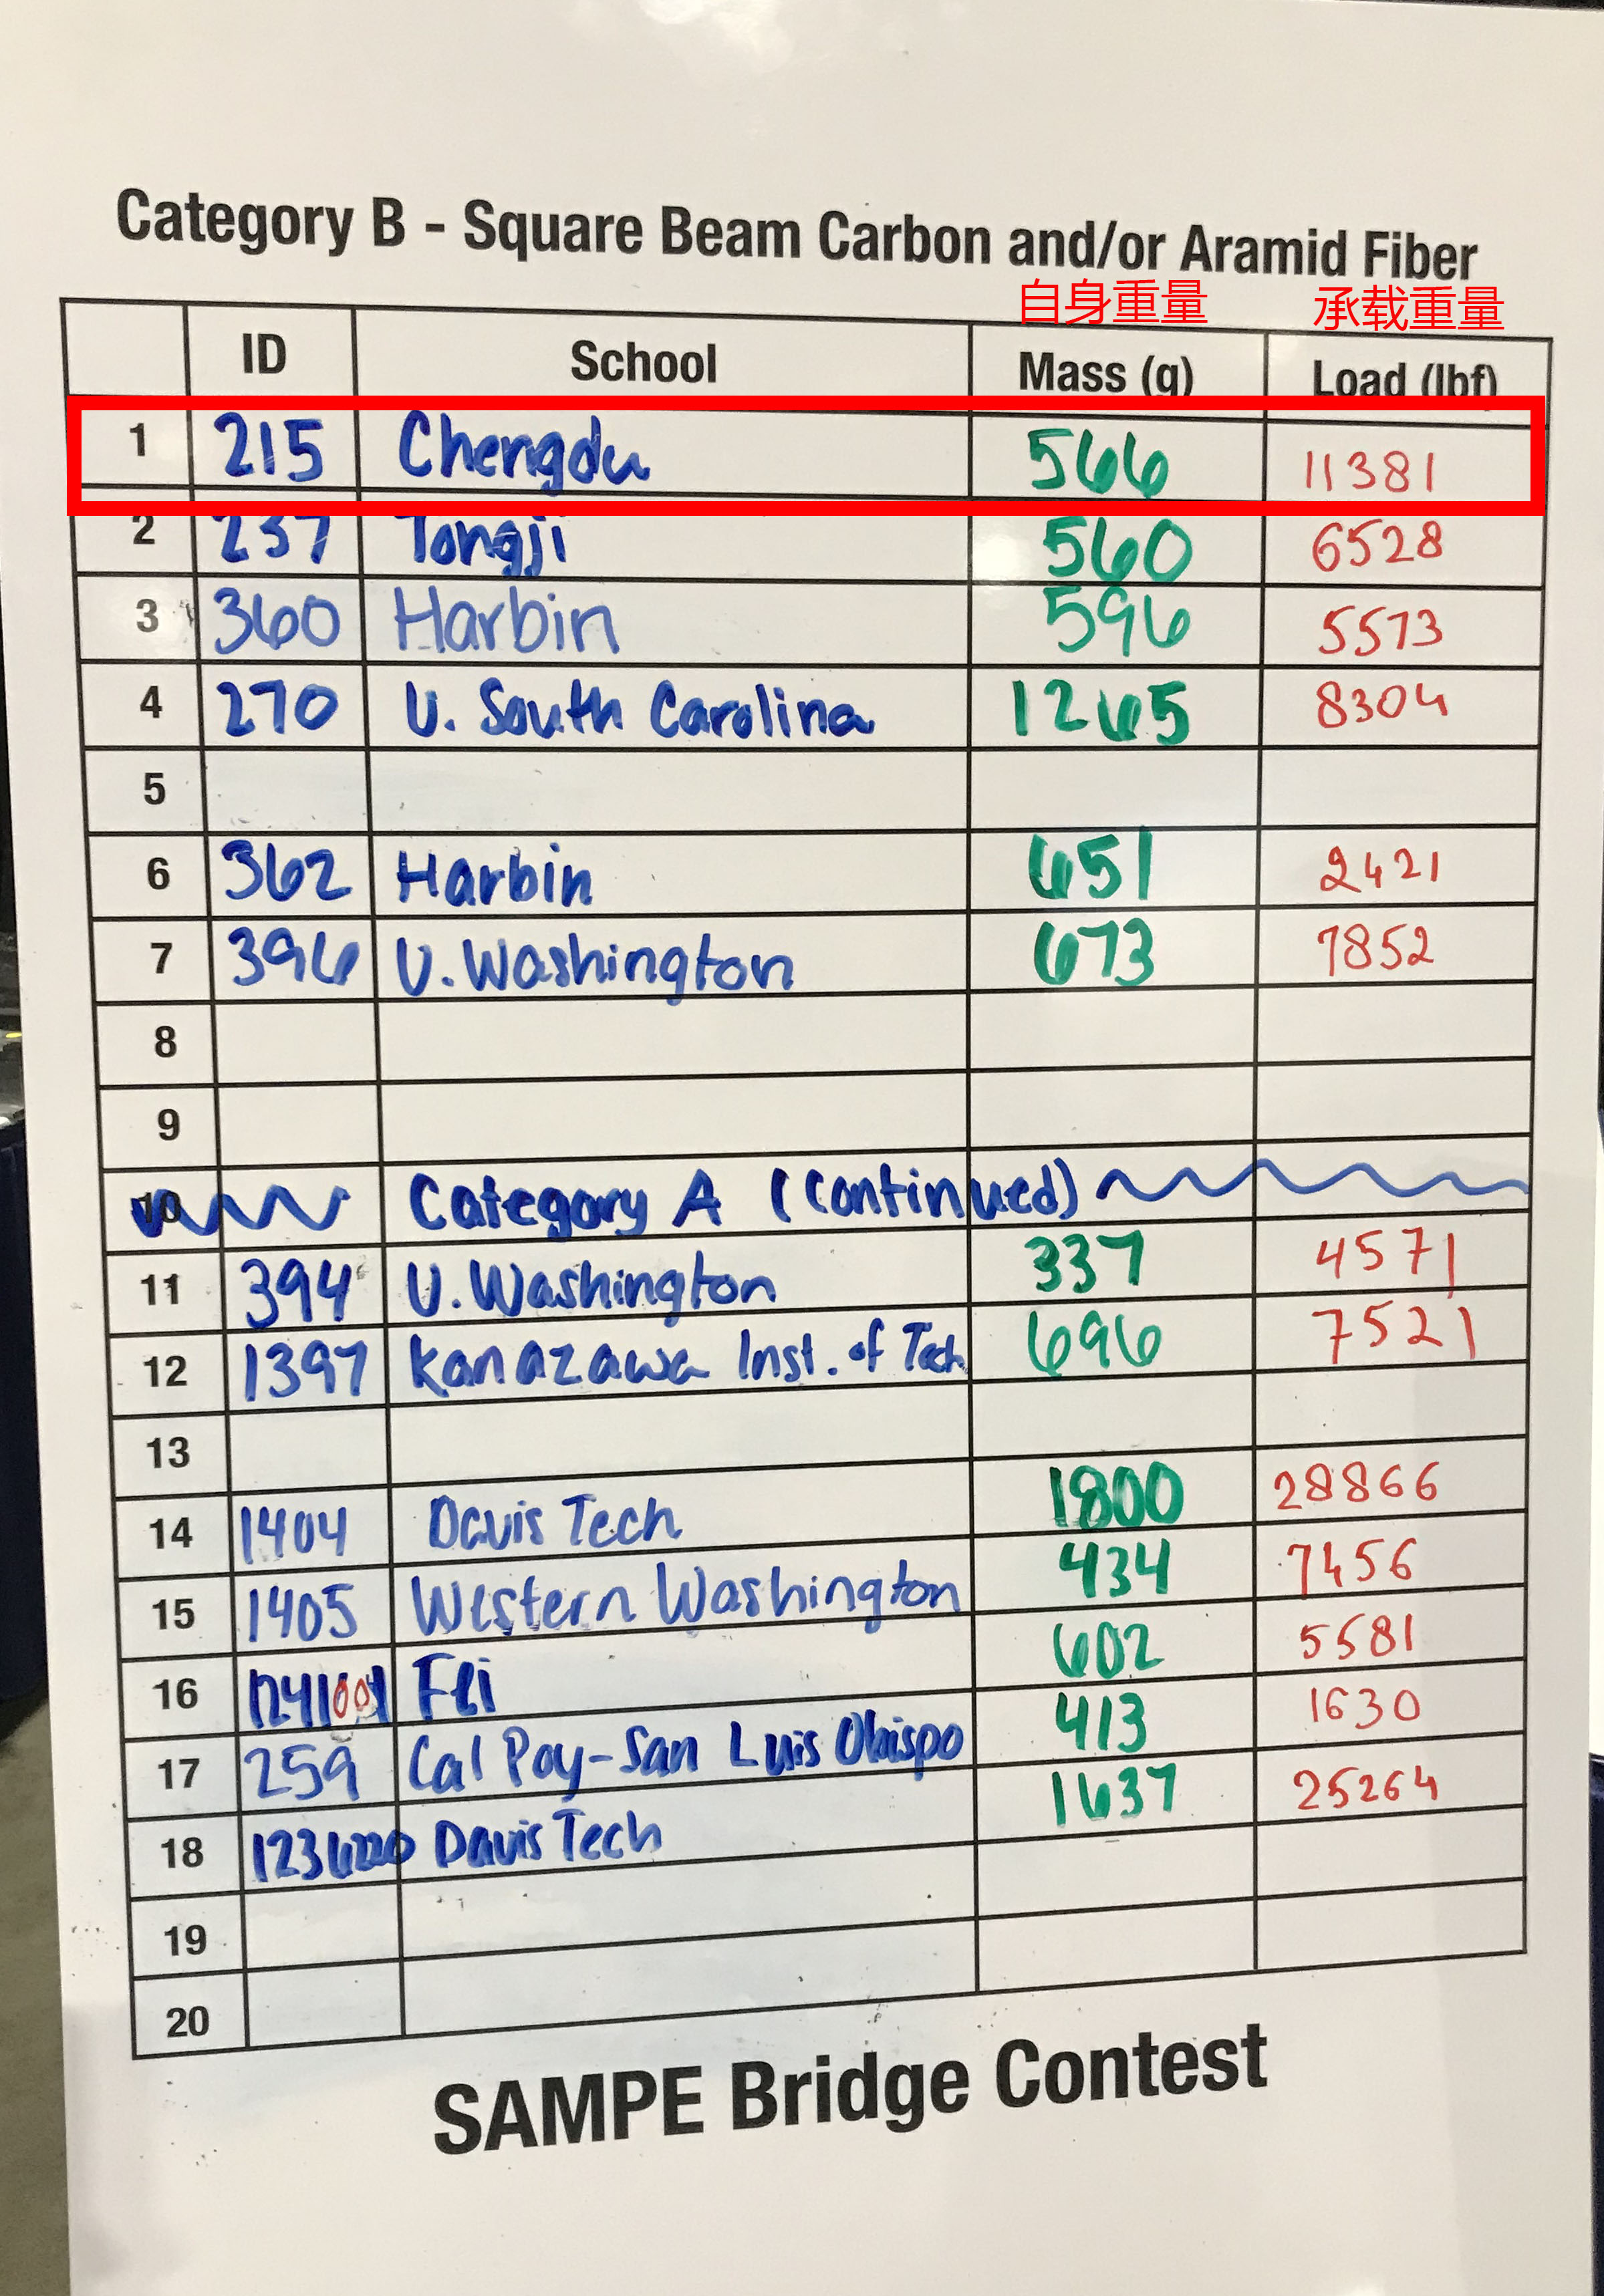 Category B - Square Beam Carbon and/or Aramid Fiber
自身重量 承载重量
ID School Mass (g) Load (lbf)
1 215 Chengdu 566 11381
2 237 Tongji 560 6528
3 360 Harbin 596 5573
4 270 U. South Carolina 1265 8304
5
6 362 Harbin 651 2421
7 396 U. Washington 673 7852
8
9
10 Category A (Continued)
11 394 U. Washington 337 4571
12 1397 Kanazawa Inst. of Tech 696 7521
13
14 1404 Davis Tech 1800 28866
15 1405 Western Washington 434 7456
16 Fei 602 5581
17 259 Cal Poy-San Luis Obispo 413 1630
18 Davis Tech 1637 25264
19
20
SAMPE Bridge Contest